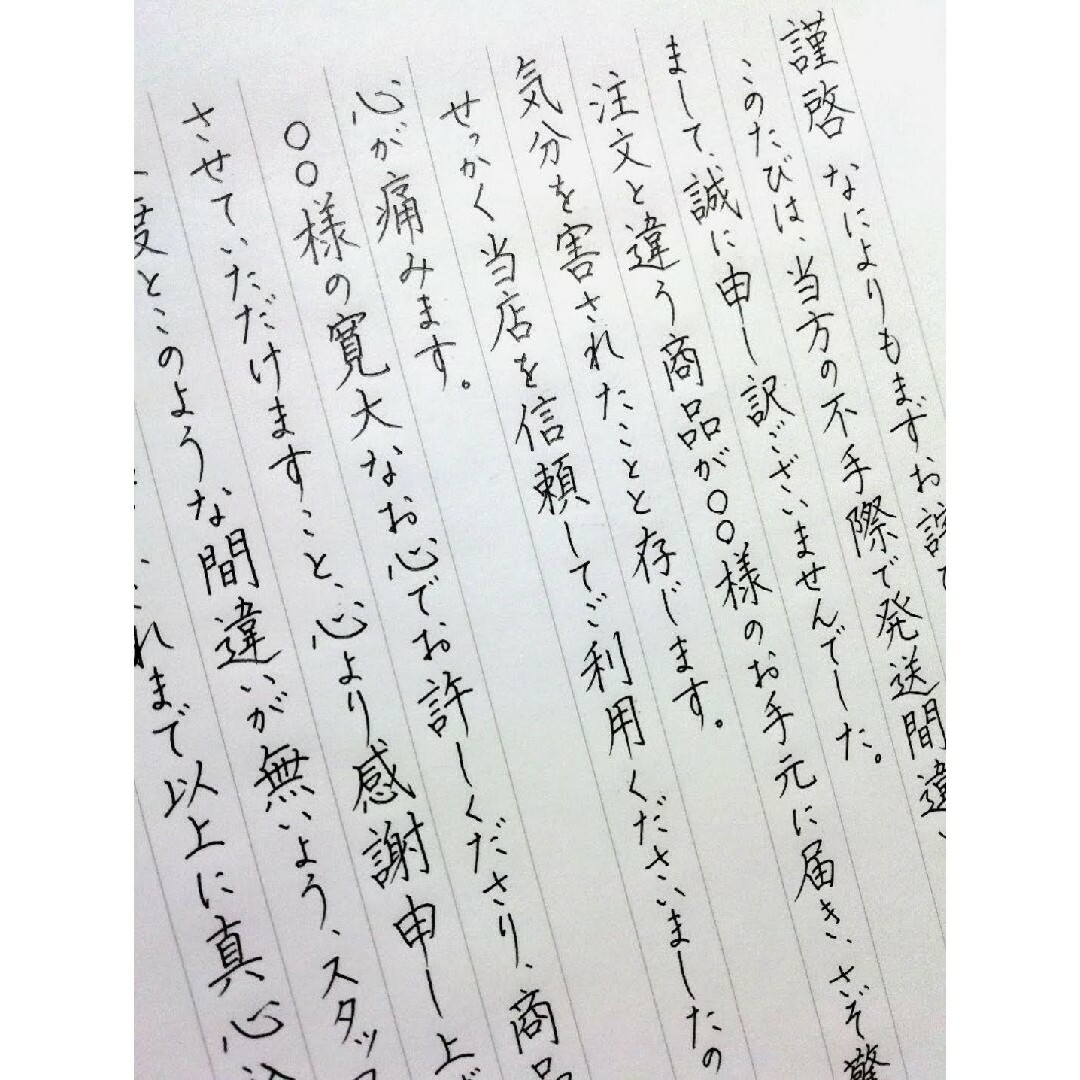 謹啓 なによりもまずお詫び
このたびは、当方の不手際で発送間違い
まして、誠に申し訳ございませんでした。
注文と違う商品が〇〇様のお手元に届き、さぞ驚
気分を害されたことと存じます。
せっかく当店を信頼してご利用くださいましたの
心が痛みます。
〇〇様の寛大なお心でお許しくださり、商品
させていただけますこと、心より感謝申し上げ
度とこのような間違いが無いよう、スタッフ
れまで以上に真心込